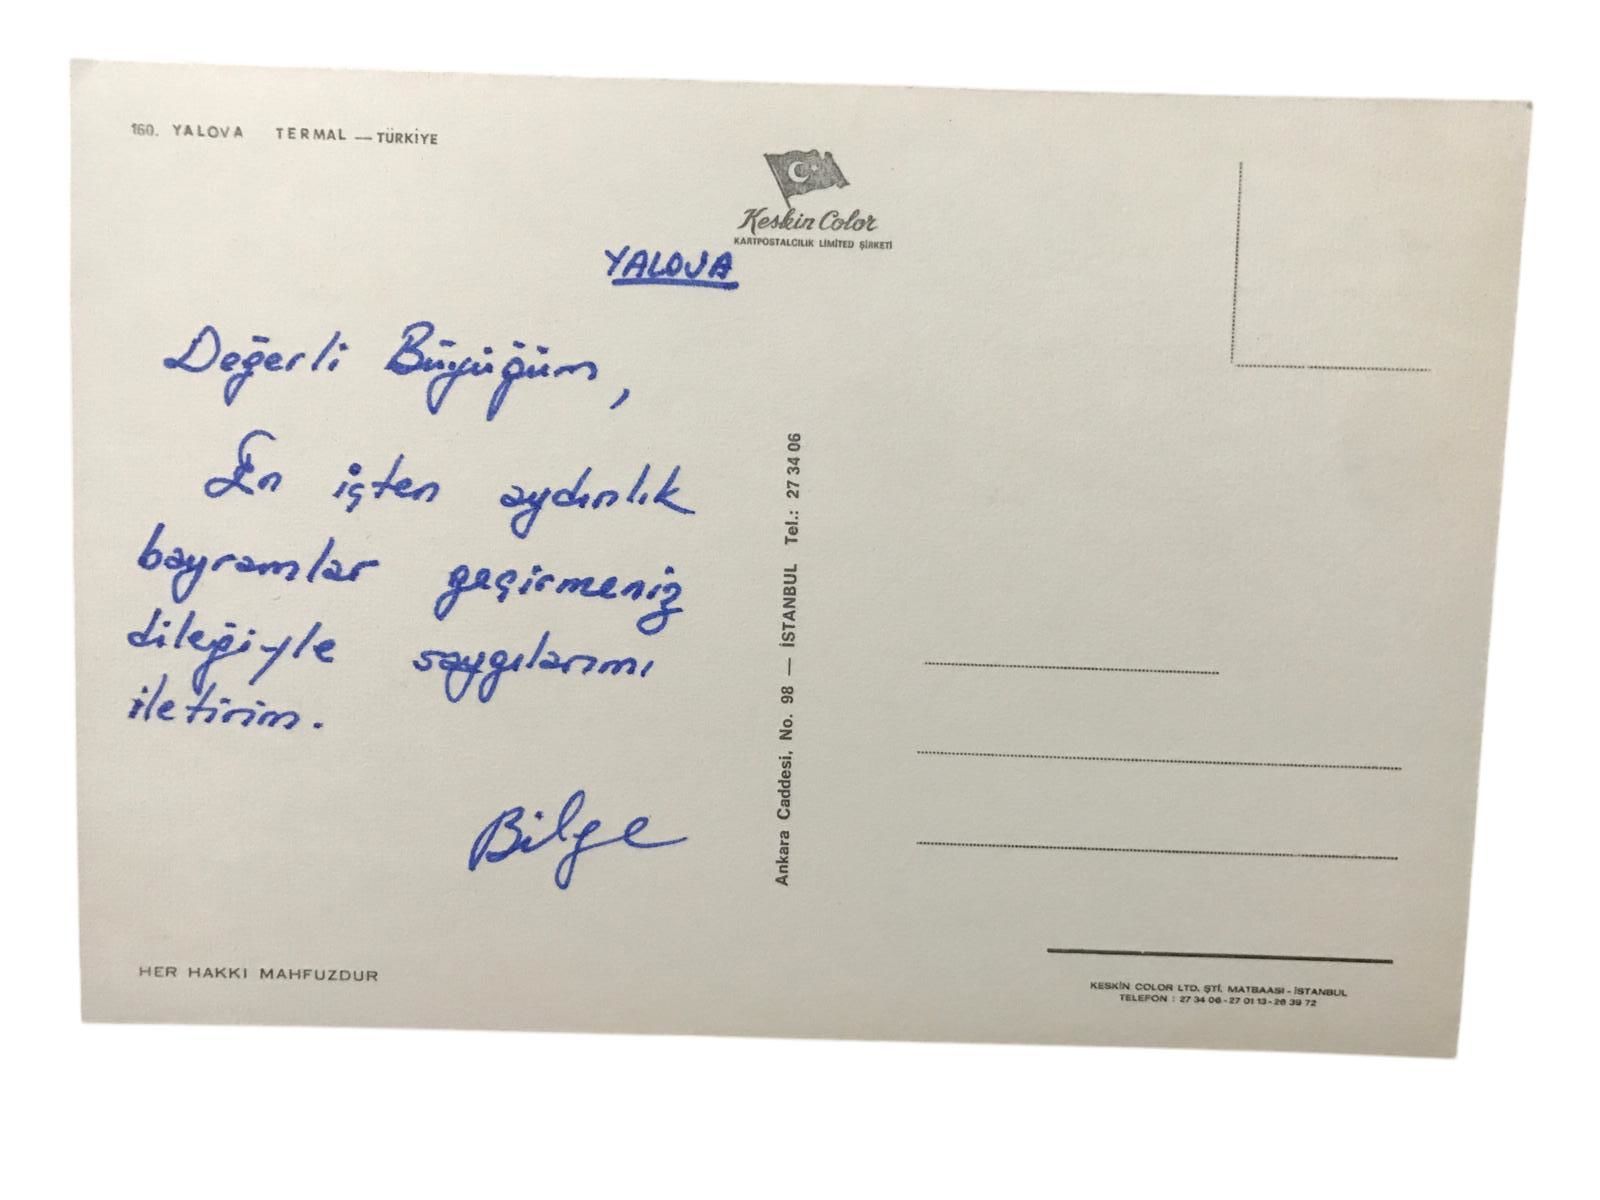 160. YALOVA TERMAL — TÜRKİYE
Keskin Color
KARTPOSTALCILIK LİMİTED ŞİRKETİ
YALOVA
Değerli Büyüğüm,
En içten aydınlık
bayramlar geçirmeniz
dileğiyle saygılarımı
iletirim.
Bilge
HER HAKKI MAHFUZDUR
Ankara Caddesi, No. 98 — İSTANBUL Tel.: 27 34 06
KESKİN COLOR LTD. ŞTİ. MATBAASI - İSTANBUL
TELEFON : 27 34 06 - 27 01 13 - 26 39 72